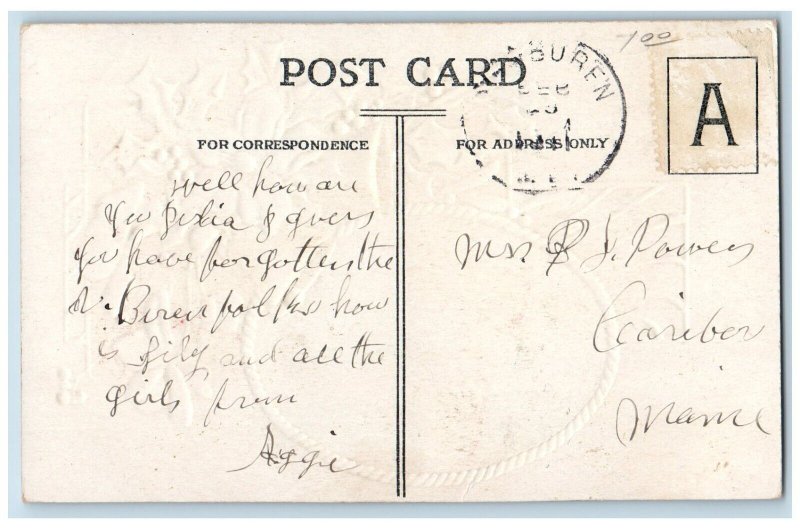 1.00
POST CARD
BUREN
FEB
A
FOR CORRESPONDENCE
FOR ADDRESS ONLY
well how are
you & guess
you have forgotten the
V. Buren folks how
is Lily and all the
girls from
Aggie
Mrs J. Powers
Caribou
Maine